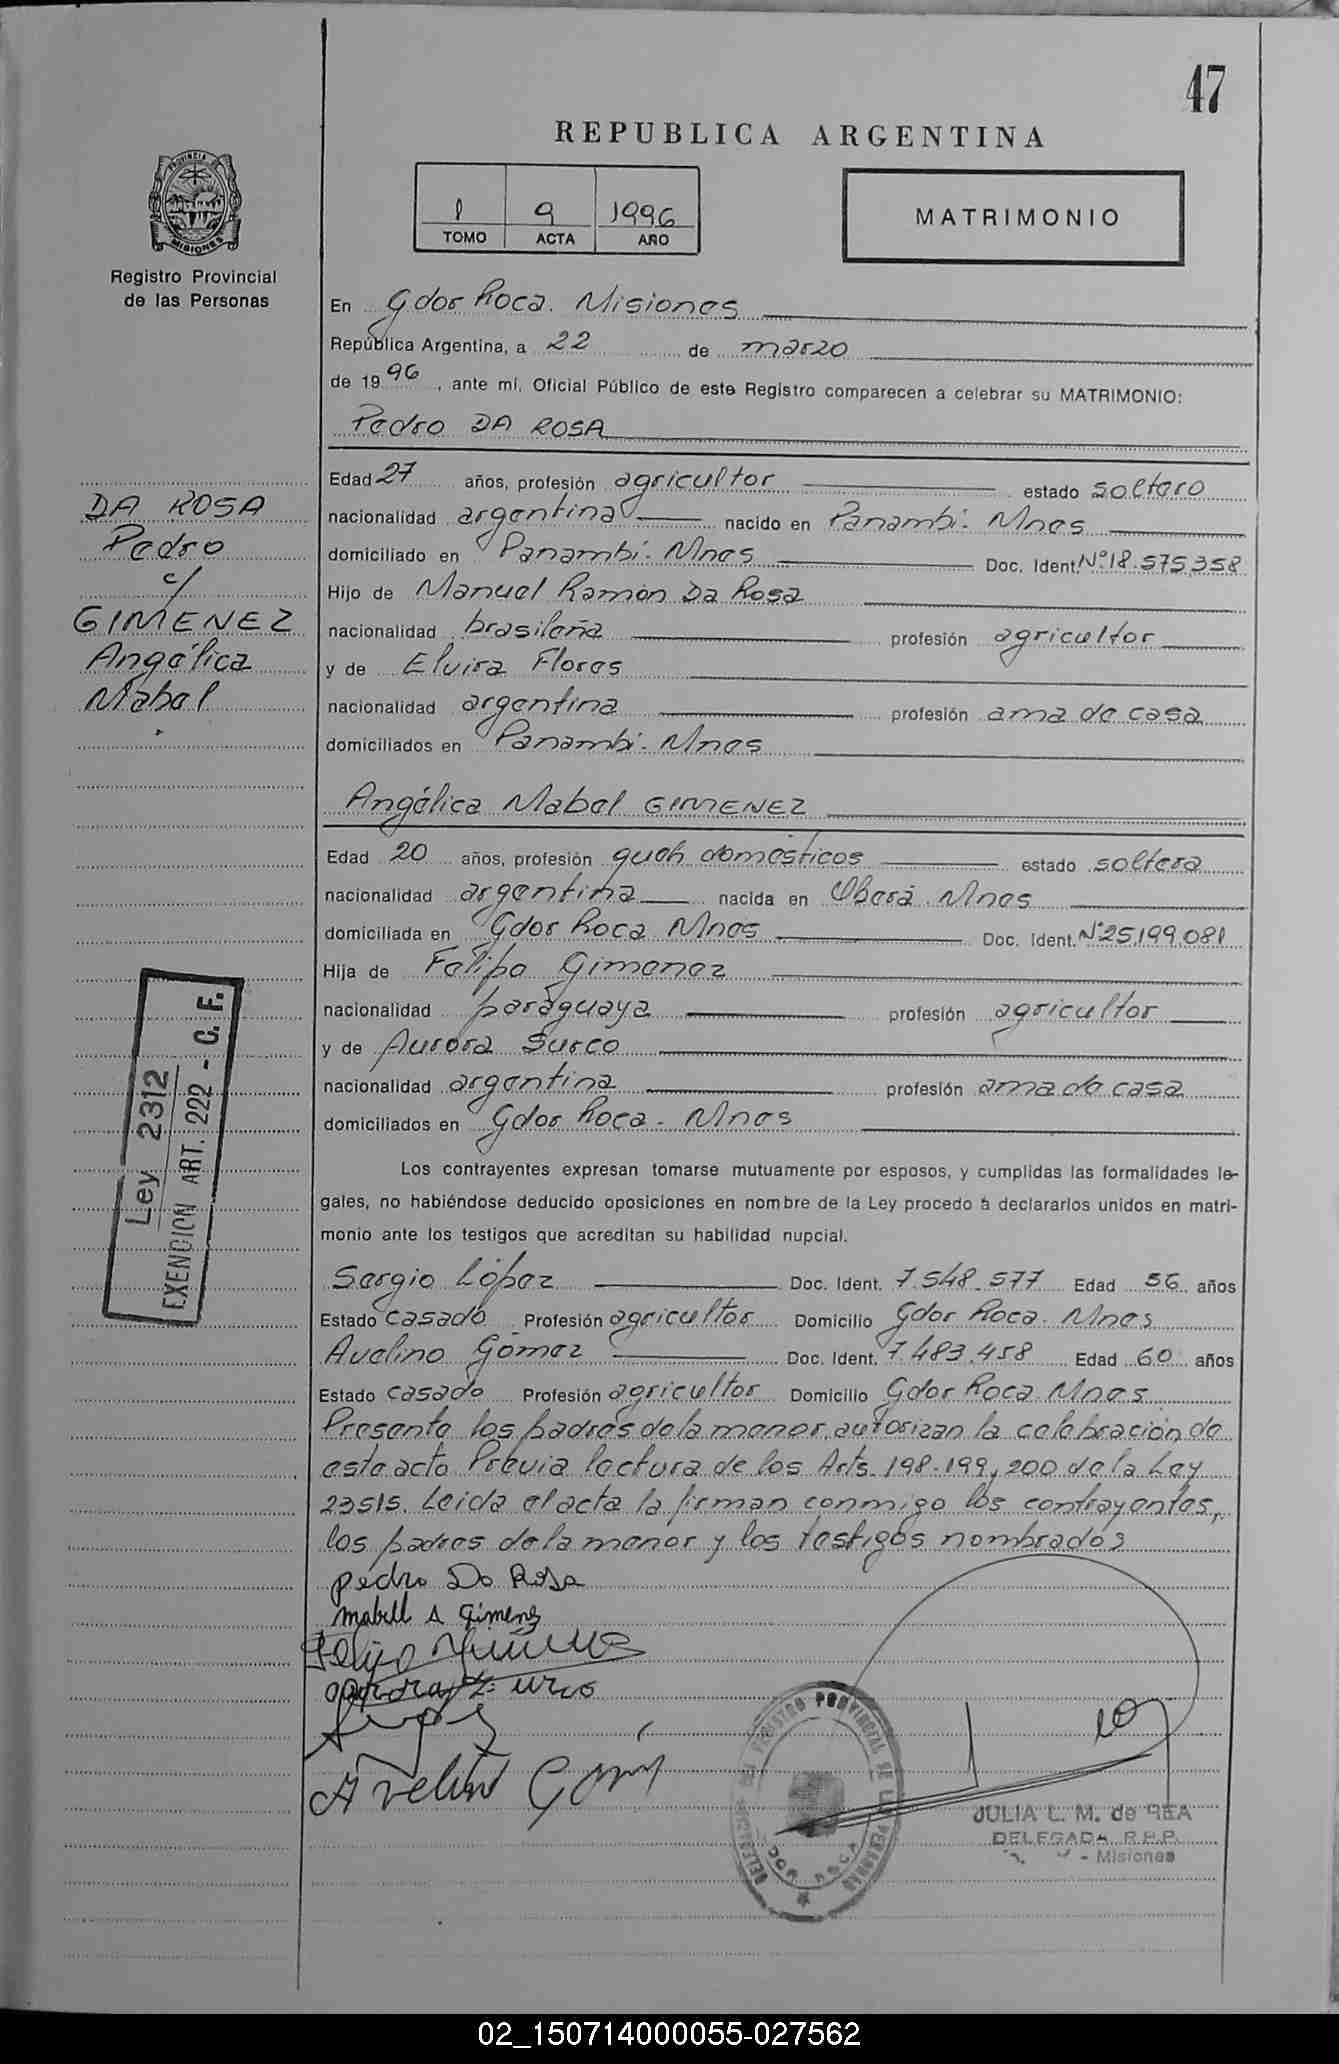 47
REPUBLICA ARGENTINA
1 9 1996
TOMO ACTA AÑO
MATRIMONIO
PROVINCIA DE
MISIONES
Registro Provincial
de las Personas
En Gdor Roca. Misiones
República Argentina, a 22 de marzo
de 19 96, ante mí, Oficial Público de este Registro comparecen a celebrar su MATRIMONIO:
Pedro DA ROSA
Edad 27 años, profesión agricultor estado soltero
nacionalidad argentina nacido en Panambí. Mnes
domiciliado en Panambí. Mnes Doc. Ident. Nº 18.575.358
Hijo de Manuel Ramón Da Rosa
nacionalidad brasileña profesión agricultor
y de Elvira Flores
nacionalidad argentina profesión ama de casa
domiciliados en Panambí. Mnes
DA ROSA
Pedro
c/
GIMENEZ
Angélica
Mabel
Angélica Mabel GIMENEZ
Edad 20 años, profesión queh domésticos estado soltera
nacionalidad argentina nacida en Oberá. Mnes
domiciliada en Gdor Roca Mnes Doc. Ident. Nº 25.199.081
Hija de Felipe Gimenez
nacionalidad paraguaya profesión agricultor
y de Aurora Surco
nacionalidad argentina profesión ama de casa
domiciliados en Gdor Roca. Mnes
Ley 2312
EXENCION ART. 222 - C. F.
Los contrayentes expresan tomarse mutuamente por esposos, y cumplidas las formalidades le-
gales, no habiéndose deducido oposiciones en nombre de la Ley procedo a declararlos unidos en matri-
monio ante los testigos que acreditan su habilidad nupcial.
Sergio López Doc. Ident. 7.548.577 Edad 56 años
Estado casado Profesión agricultor Domicilio Gdor Roca. Mnes
Avelino Gómez Doc. Ident. 7.483.458 Edad 60 años
Estado casado Profesión agricultor Domicilio Gdor Roca Mnes
Presente los padres de la menor, autorizan la celebración de
este acto Previa lectura de los Arts. 198-199, 200 de la Ley
23515. Leida el acta la firman conmigo los contrayentes,
los padres de la menor y los testigos nombrados
pedro Da Rosa
mabell A gimenz
Avelino Góm
REGISTRO PROVINCIAL DE LAS PERSONAS
JULIA L. M. de REA
DELEGADA R.P.P.
- Misiones
02_150714000055-027562